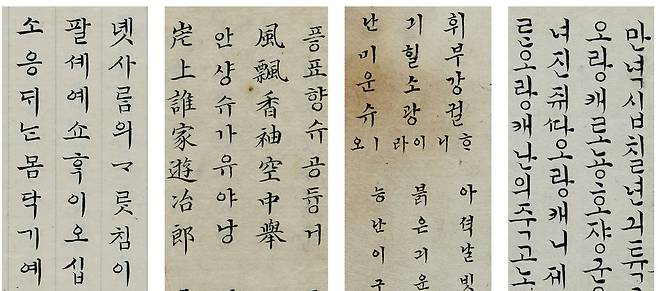 녯사름의ᄀᆞ릇침이
팔셰예쇼ᄒᆞᆨ이오십
소응뒤ᄂᆞᆫ몸닥기예
픙표향슈공듕거
風飄香袖空中擧
안샹슈가유야낭
岸上誰家遊冶郎
휘부강걸
기힐소광
난미운슈
아젹날빗
붉은긔운
능난이구
만녁십칠년긔튝
오랑캐로농호쟝군
녀진쥐ᄯᅡ오랑캐니제
오랑캐난의죽고노